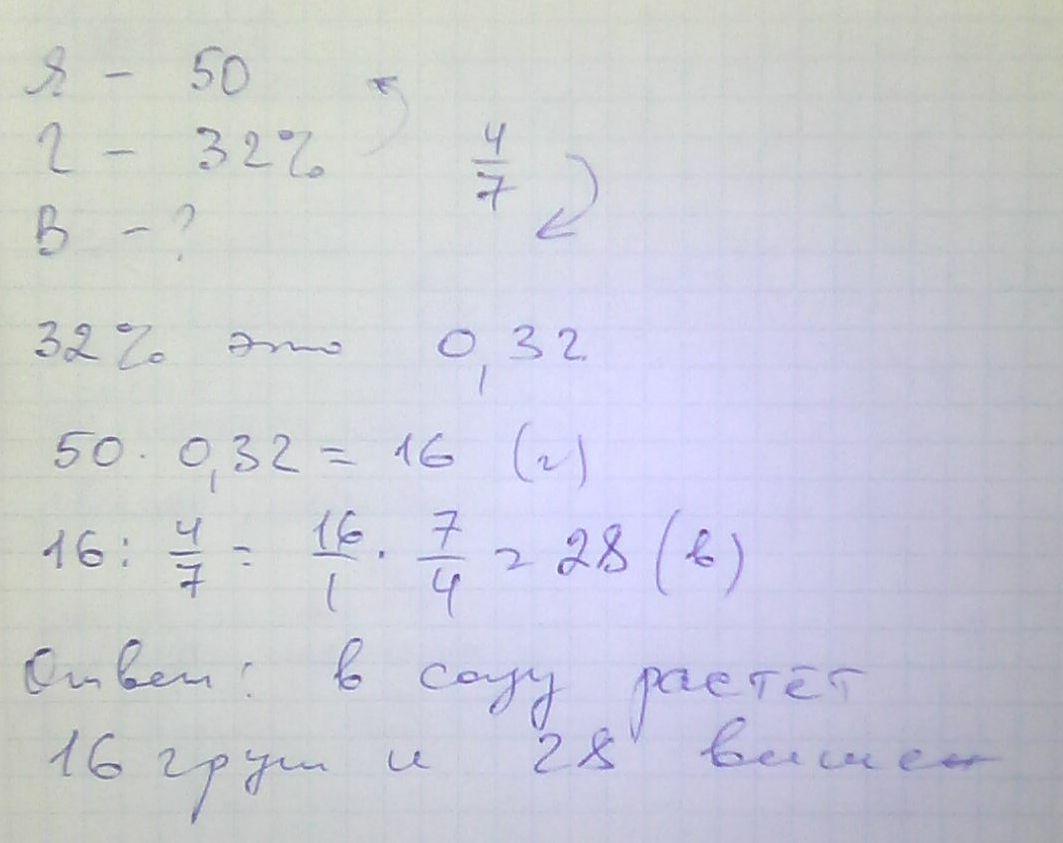 Я - 50
Г - 32%
В - ?
4/7
32% это 0,32
50 · 0,32 = 16 (г)
16 : 4/7 = 16/1 · 7/4 = 28 (в)
Ответ: в саду растёт
16 груш и 28 вишен